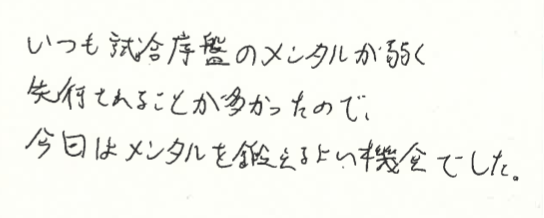 いつも試合序盤のメンタルが弱く
先行されることが多かったので、
今日はメンタルを鍛えるよい機会でした。